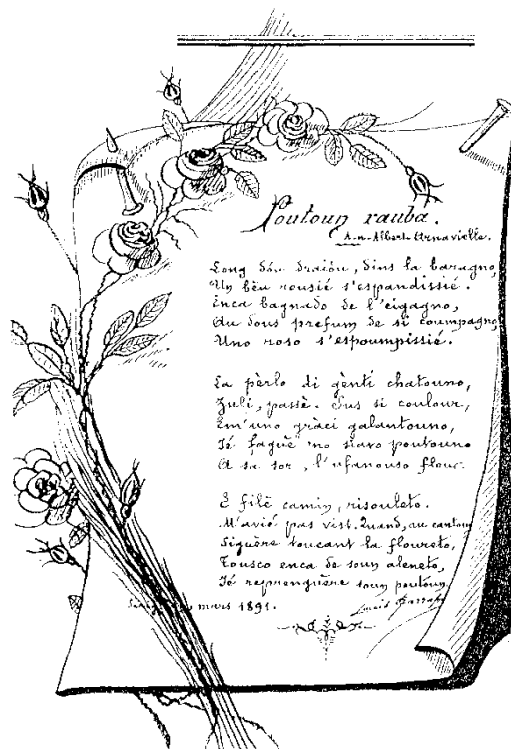 Poutoun rauba.
A-n-Albert Arnavielle.
Long dóu draiòu, dins la baragno,
Un bèu rousié s'espandissié.
Enca bagnado de l'eigagno,
Au dous prefum de si coumpagno
Uno roso s'espoumpissié.
La pèrlo di gènti chatouno,
Zuli, passè. Sus si coulour,
Em'uno gràci galantouno,
Ié faguè 'no siavo poutouno
A sa sor, l'ufanouso flour.
E filè camin, risouleto.
M'avié pas vist. Quand, au cantoun
Siguère toucant la floureto,
Tousco enca de soun aleneto,
Ié reprenguère soun poutoun.
mars 1891.
Louis